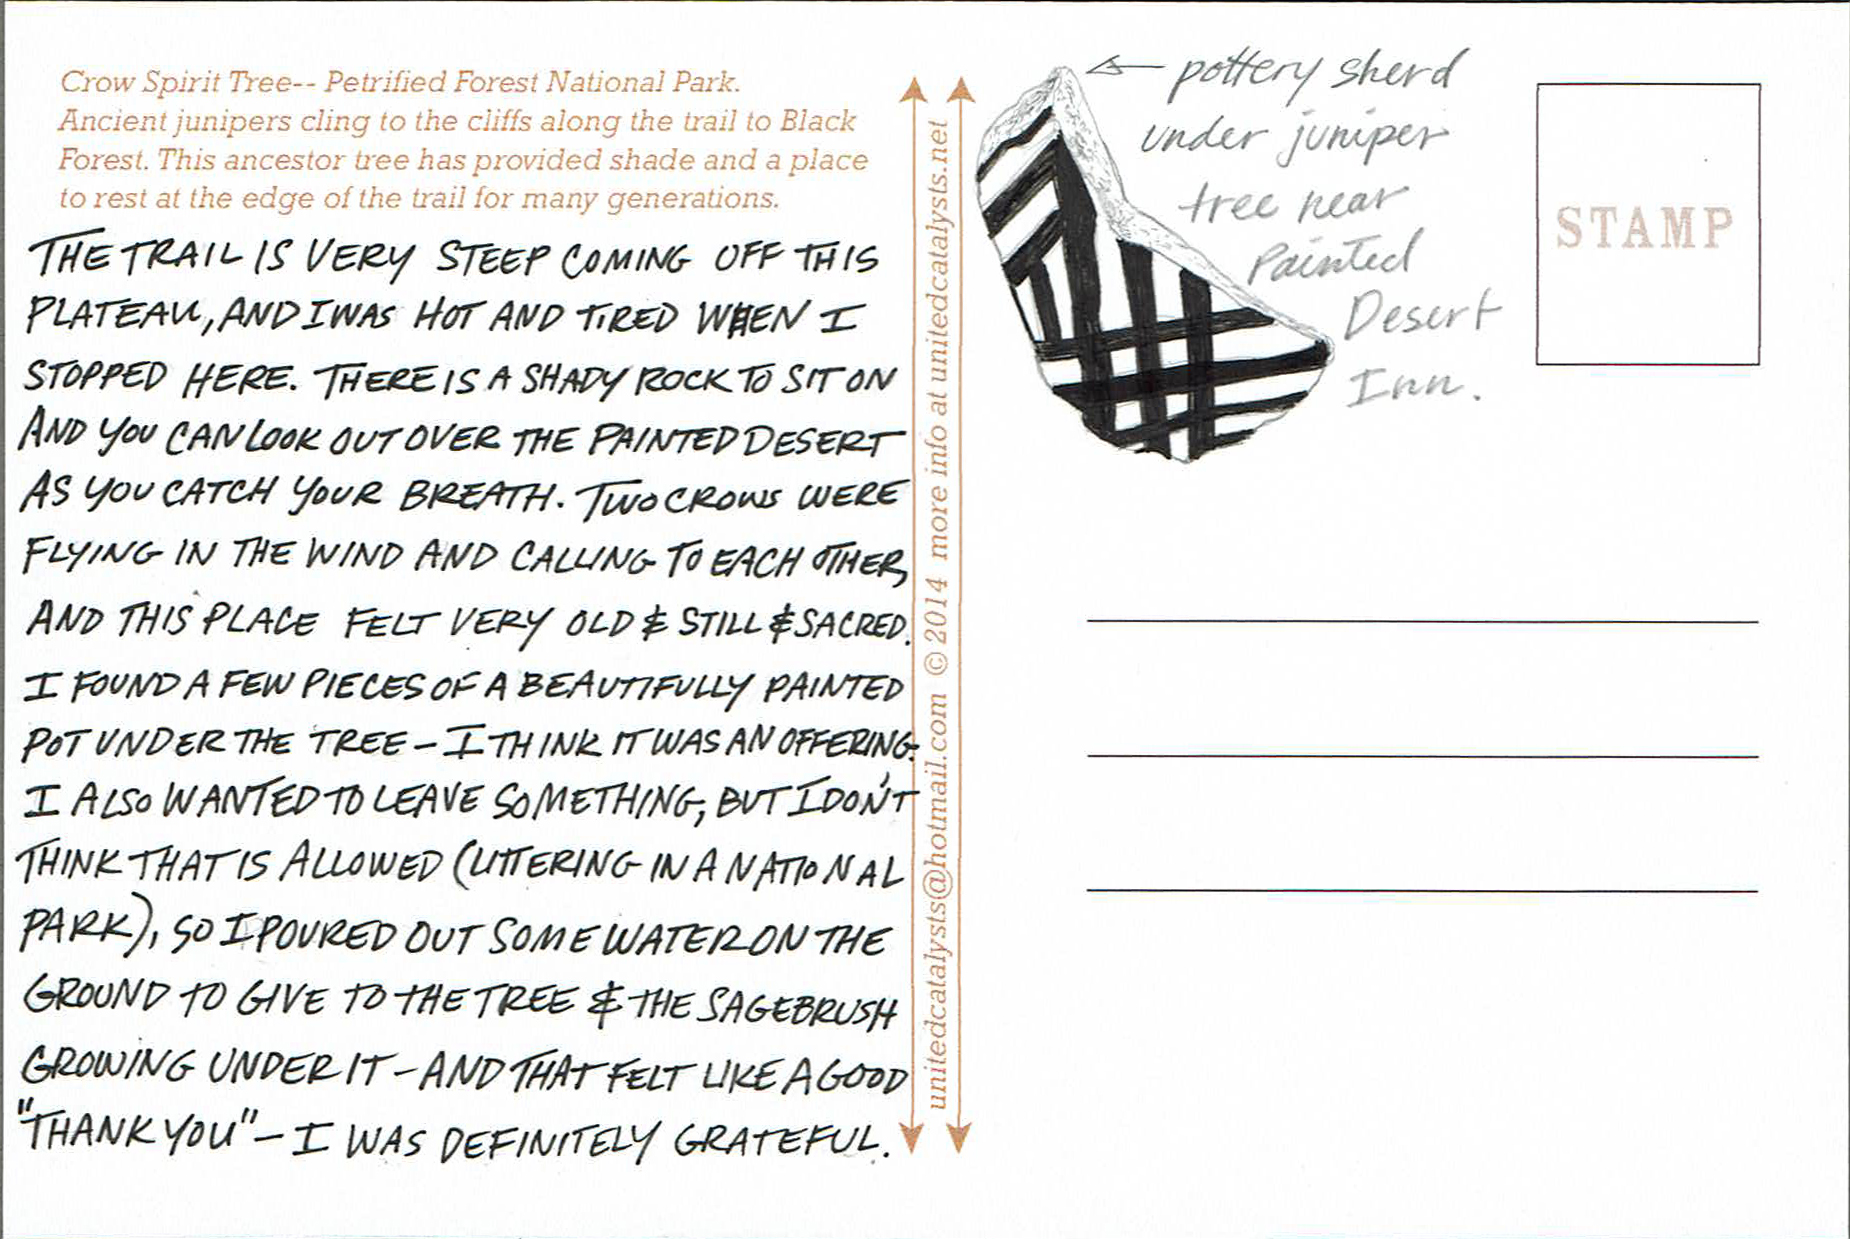 Crow Spirit Tree-- Petrified Forest National Park.
Ancient junipers cling to the cliffs along the trail to Black
Forest. This ancestor tree has provided shade and a place
to rest at the edge of the trail for many generations.
THE TRAIL IS VERY STEEP COMING OFF THIS
PLATEAU, AND I WAS HOT AND TIRED WHEN I
STOPPED HERE. THERE IS A SHADY ROCK TO SIT ON
AND YOU CAN LOOK OUT OVER THE PAINTED DESERT
AS YOU CATCH YOUR BREATH. TWO CROWS WERE
FLYING IN THE WIND AND CALLING TO EACH OTHER,
AND THIS PLACE FELT VERY OLD & STILL & SACRED.
I FOUND A FEW PIECES OF A BEAUTIFULLY PAINTED
POT UNDER THE TREE – I THINK IT WAS AN OFFERING.
I ALSO WANTED TO LEAVE SOMETHING, BUT I DON'T
THINK THAT IS ALLOWED (LITTERING IN A NATIONAL
PARK), SO I POURED OUT SOME WATER ON THE
GROUND TO GIVE TO THE TREE & THE SAGEBRUSH
GROWING UNDER IT – AND THAT FELT LIKE A GOOD
"THANK YOU" – I WAS DEFINITELY GRATEFUL.
unitedcatalysts@hotmail.com © 2014 more info at unitedcatalysts.net
pottery sherd
under juniper
tree near
Painted
Desert
Inn.
STAMP